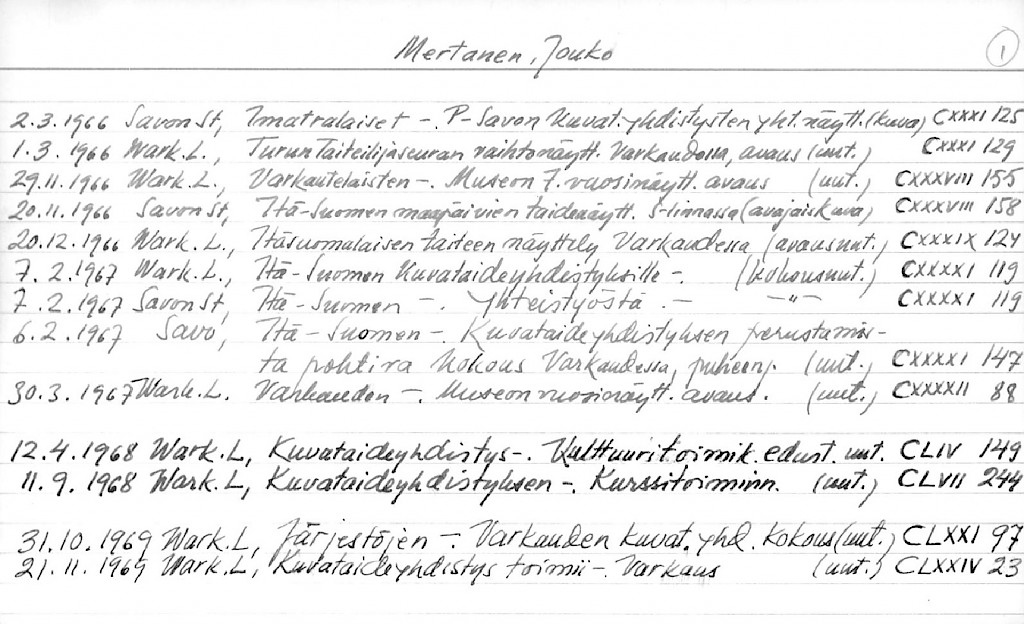 Mertanen, Jouko
1
2.3.1966 Savon St, Imatralaiset -. P-Savon Kuvat.yhdistysten yht.näytt.(kuva) CXXXI 125
1.3.1966 Wark.L., Turun Taiteilijaseuran vaihtonäytt. Varkaudessa, avaus (uut.) CXXXI 129
29.11.1966 Wark.L., Varkautelaisten -. Museon 7. vuosinäytt. avaus (uut.) CXXXVIII 155
20.11.1966 Savon St, Itä-Suomen maapäivien taidenäytt. S-linnassa (avajaiskuva) CXXXVIII 158
20.12.1966 Wark.L., Itäsuomalaisen taiteen näyttely Varkaudessa (avausuut.) CXXXIX 124
7.2.1967 Wark.L., Itä-Suomen Kuvataideyhdistyksille -. (kokousuut.) CXXXXI 119
7.2.1967 Savon St, Itä-Suomen -. Yhteistyöstä .- -"- CXXXXI 119
6.2.1967 Savo, Itä-Suomen -. Kuvataideyhdistyksen perustamis-
ta pohtiva kokous Varkaudessa, puheenj. (uut.) CXXXXI 147
30.3.1967 Wark.L. Varkauden -. Museon vuosinäytt. avaus. (uut.) CXXXXII 88
12.4.1968 Wark.L, Kuvataideyhdistys-. Kulttuuritoimik. edust. uut. CLIV 149
11.9.1968 Wark.L, Kuvataideyhdistyksen -. Kurssitoiminn. (uut.) CLVII 244
31.10.1969 Wark.L, Järjestöjen -. Varkauden kuvat.yhd. kokous (uut.) CLXXI 97
21.11.1969 Wark.L, Kuvataideyhdistys toimii -. Varkaus (uut.) CLXXIV 23